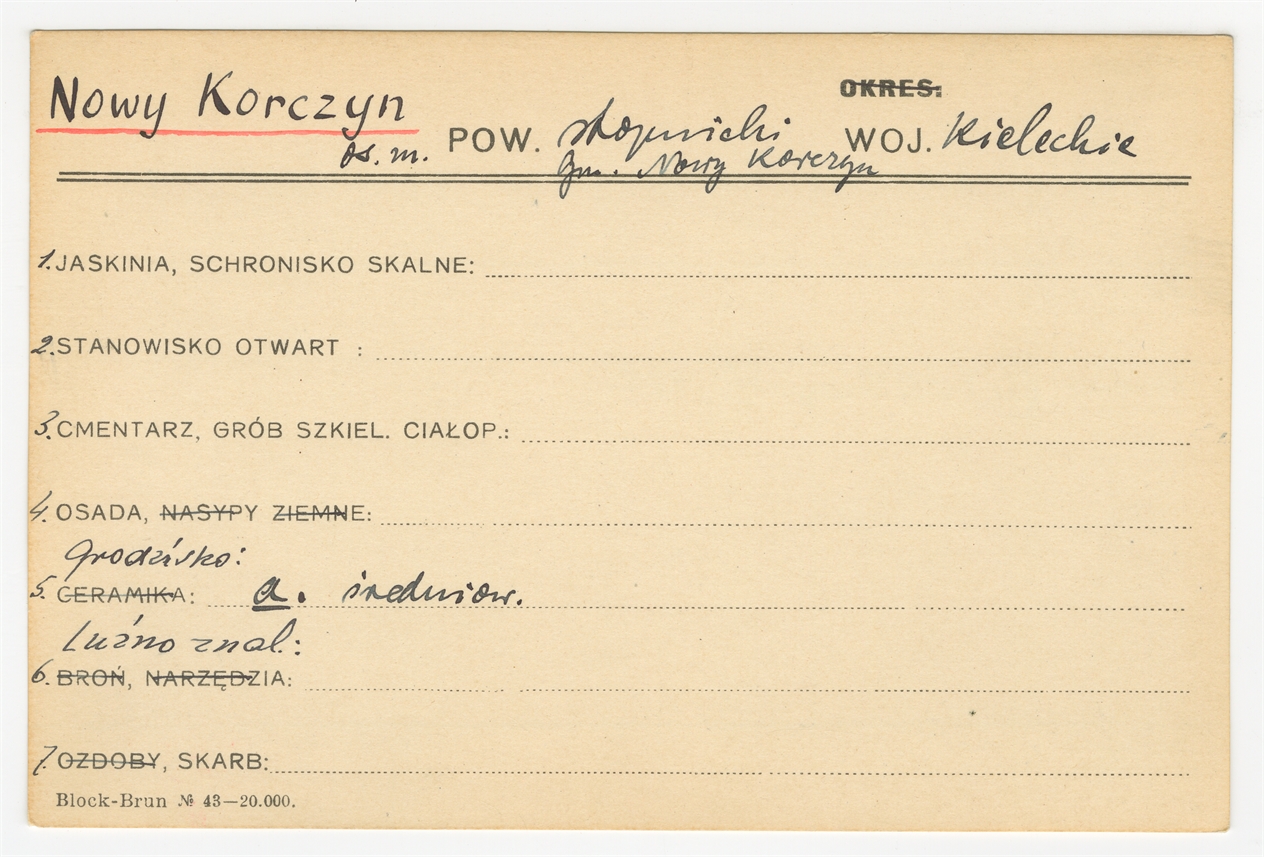 OKRES:
Nowy Korczyn
os. m. POW. stopnicki WOJ. Kieleckie
Gm. Nowy Korczyn
1. JASKINIA, SCHRONISKO SKALNE:
2. STANOWISKO OTWART :
3. CMENTARZ, GRÓB SZKIEL. CIAŁOP.:
4. OSADA, NASYPY ZIEMNE:
Grodzisko:
5. CERAMIKA: a. średniow.
Luźno znal.:
6. BROŃ, NARZĘDZIA:
7. OZDOBY, SKARB:
Block-Brun № 43—20.000.